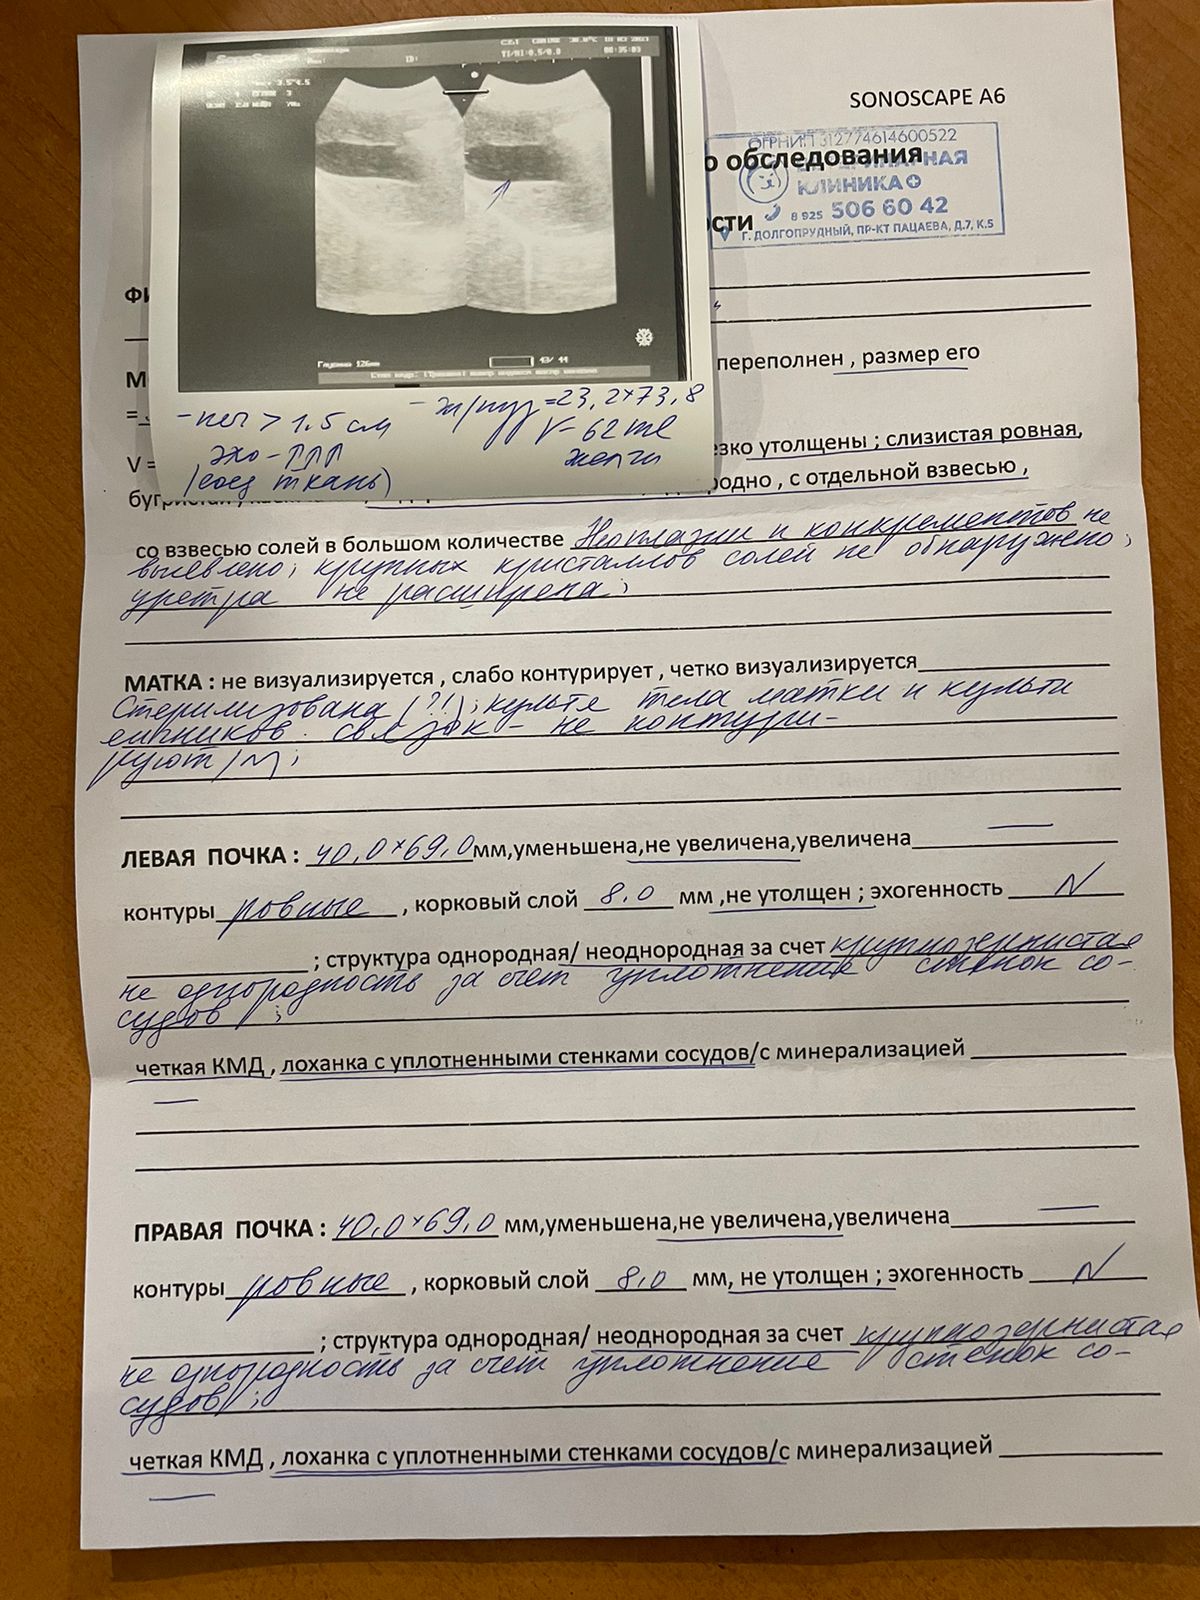 SONOSCAPE A6
о обследования
ости
ОГРНИП 312774614600522
КЛИНИКА
8 925 506 60 42
Г. ДОЛГОПРУДНЫЙ, ПР-КТ ПАЦАЕВА, Д.7, К.5
Глубина 126мм
- печ > 1.5 см
эхо - ↑↑↑
(соед ткань)
- ж/пуз = 23,2×73,8
V - 62 ml
желчи
ФИ
М
переполнен , размер его
=
V =
езко утолщены ; слизистая ровная,
родно , с отдельной взвесью ,
со взвесью солей в большом количестве Неоплазии и конкрементов не
выевлено; крупных кристаллов солей не обнаружено;
уретра не расширена;
МАТКА : не визуализируется , слабо контурирует , четко визуализируется
Стерилизована (?!); культе тела матки и культи
яичников. связок - не контури-
руют
ЛЕВАЯ ПОЧКА : 40,0×69,0 мм,уменьшена,не увеличена,увеличена —
контуры ровные , корковый слой 8,0 мм ,не утолщен ; эхогенность N
; структура однородная/ неоднородная за счет крупнозернистая
не однородность за счет уплотнение стенок со-
судов ;
четкая КМД , лоханка с уплотненными стенками сосудов/с минерализацией
—
ПРАВАЯ ПОЧКА : 40,0×69,0 мм,уменьшена,не увеличена,увеличена —
контуры ровные , корковый слой 8,0 мм, не утолщен ; эхогенность N
; структура однородная/ неоднородная за счет крупнозернистая
не однородность за счет уплотнение стенок со-
судов ;
четкая КМД , лоханка с уплотненными стенками сосудов/с минерализацией
—